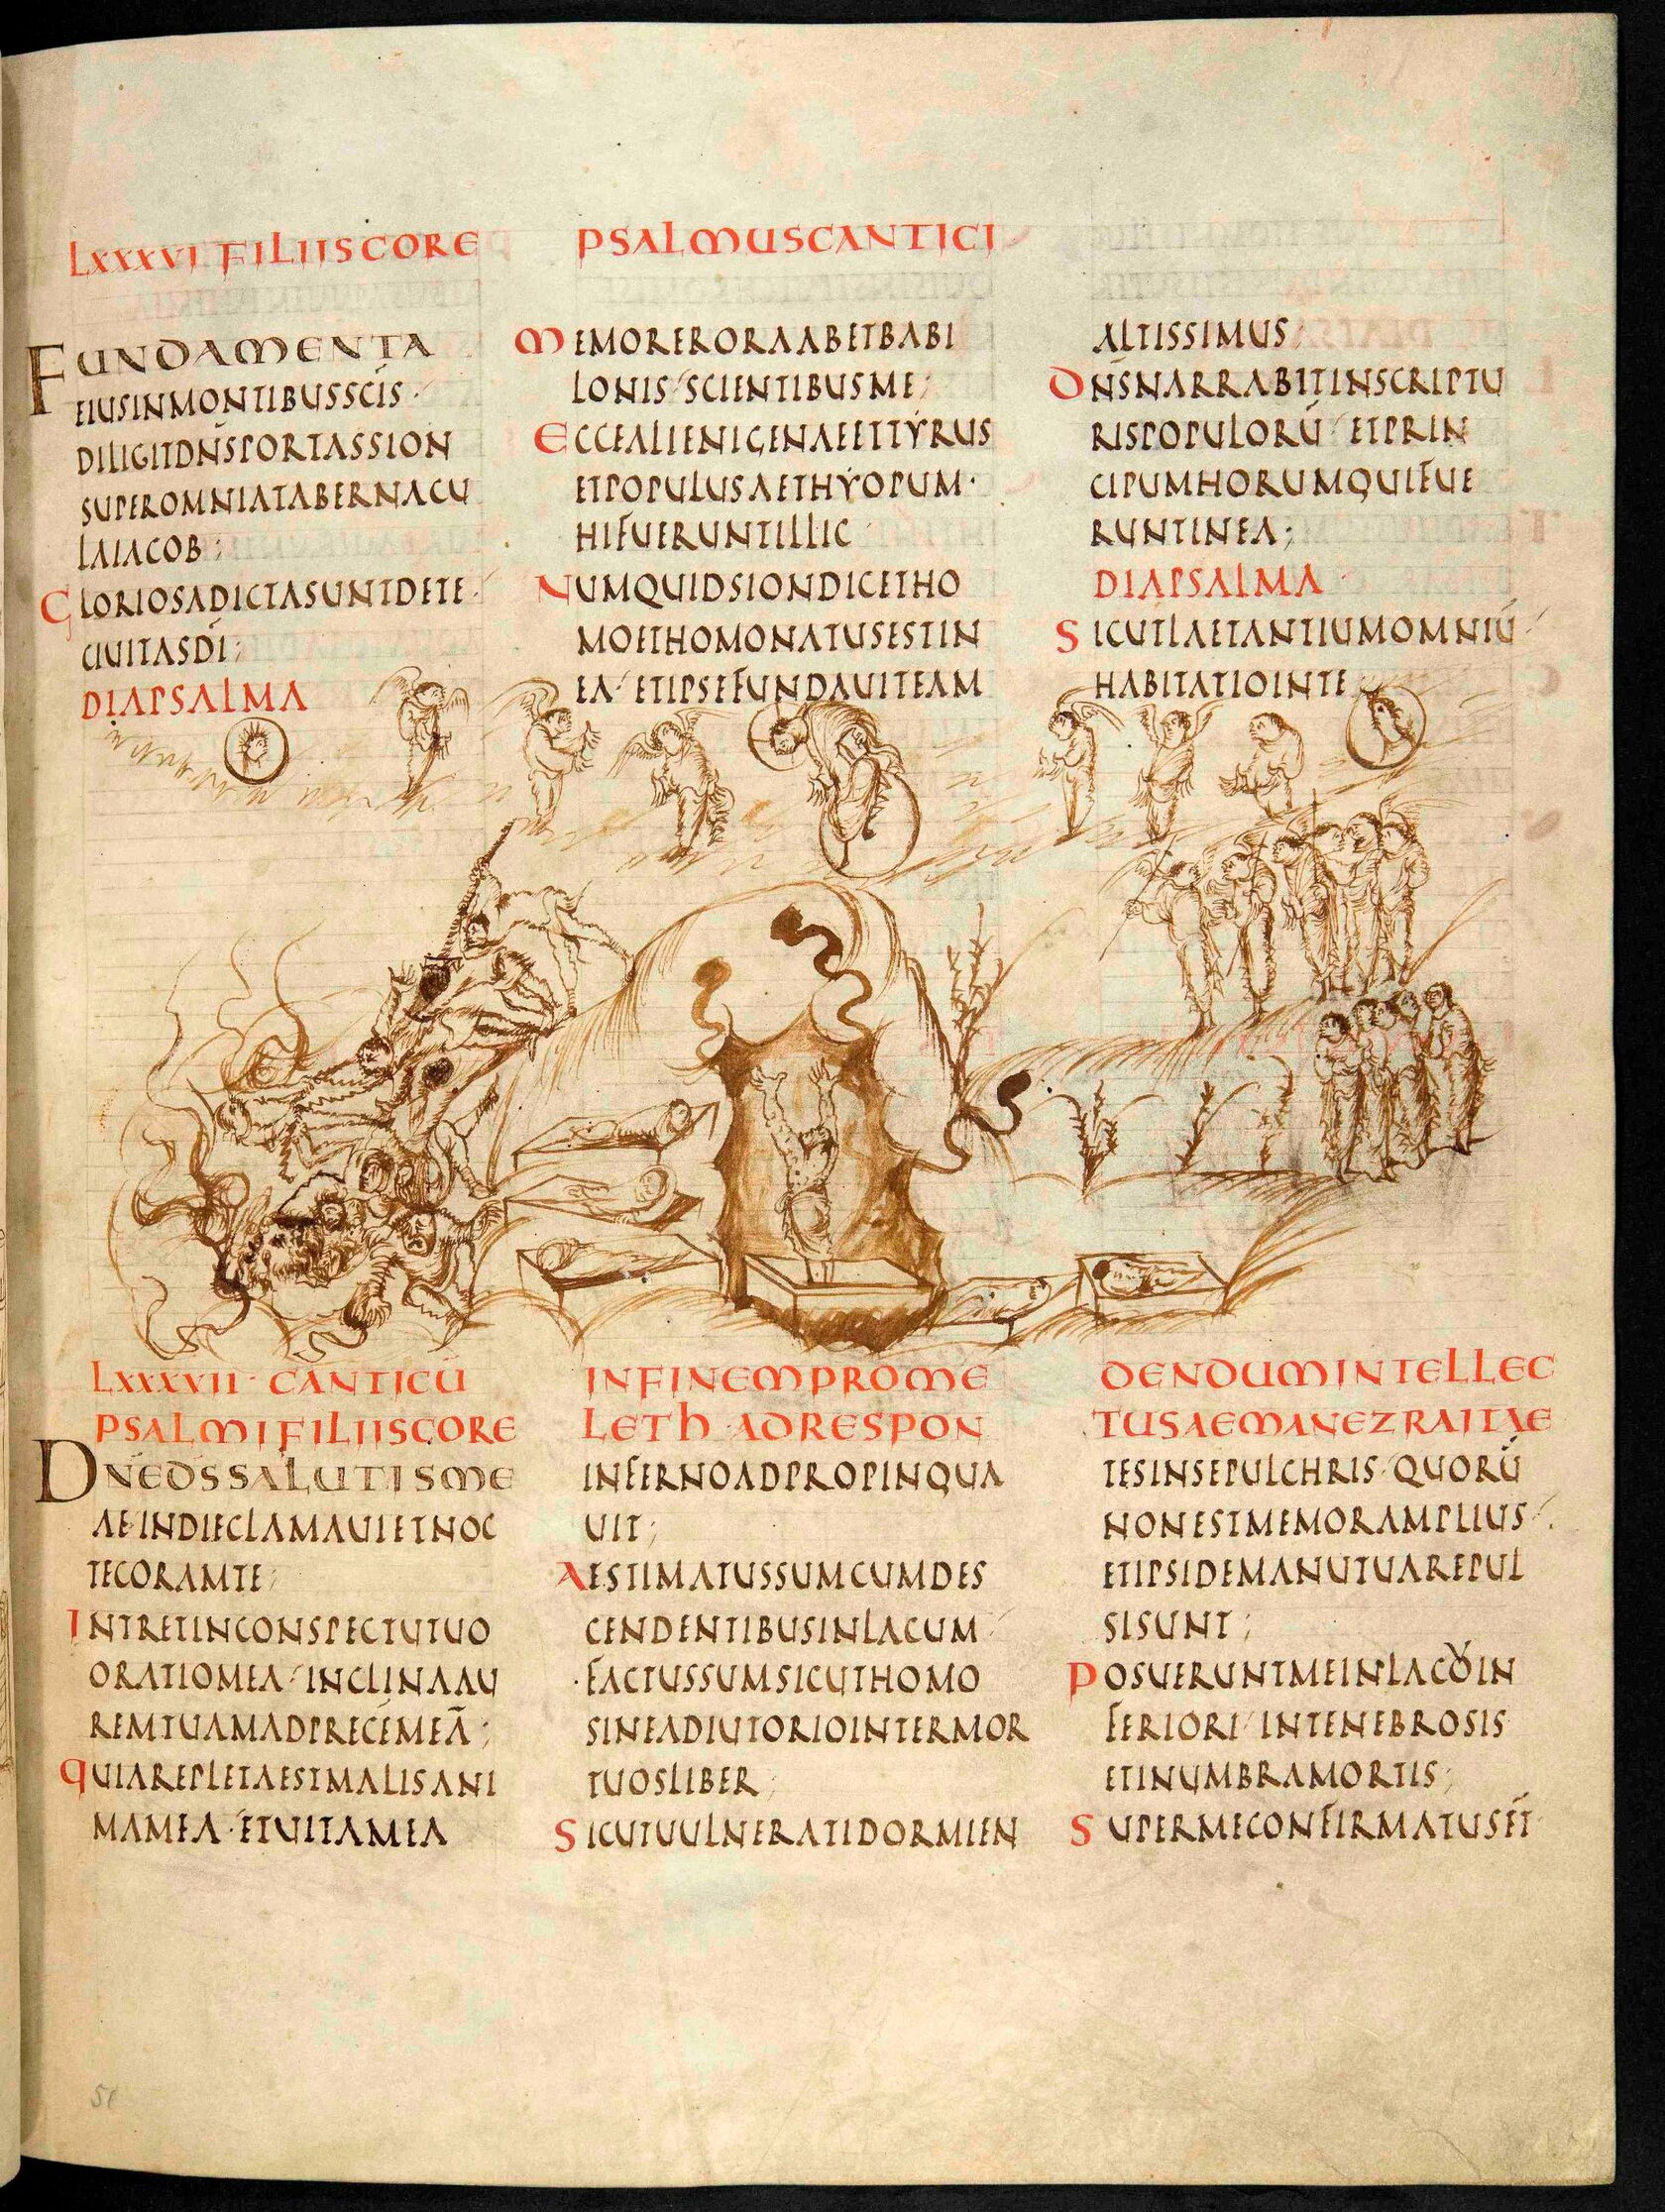 LXXXVI FILIIS CORE
PSALMUS CANTICI
FUNDAMENTA
EIUS IN MONTIBUS SCĪS·
DILIGIT DN̄S PORTAS SION
SUPER OMNIA TABERNACU
LA IACOB;
GLORIOSA DICTA SUNT DE TE·
CIUITAS DĪ;
DIAPSALMA
MEMOR ERO RAAB ET BABI
LONIS· SCIENTIBUS ME;
ECCE ALIENIGENAE ET TYRUS
ET POPULUS AETHYOPUM·
HI FUERUNT ILLIC
NUMQUID SION DICET HO
MO ET HOMO NATUS EST IN
EA· ET IPSE FUNDAUIT EAM
ALTISSIMUS
DN̄S NARRABIT IN SCRIPTU
RIS POPULORŪ ET PRIN
CIPUM HORUM QUI FUE
RUNT IN EA;
DIAPSALMA
SICUT LAETANTIUM OMNIŪ
HABITATIO IN TE
LXXXVII· CANTICŪ
PSALMI FILIIS CORE
IN FINEM PRO ME
LETH AD RESPON
DENDUM INTELLEC
TUS AEMAN EZRAITAE
DN̄E DS̄ SALUTIS ME
AE· IN DIE CLAMAUI ET NOC
TE CORAM TE;
INTRET IN CONSPECTU TUO
ORATIO MEA· INCLINA AU
REM TUAM AD PRECEM MEĀ;
QUIA REPLETA EST MALIS ANI
MA MEA· ET UITA MEA
INFERNO ADPROPINQUA
UIT;
AESTIMATUS SUM CUM DES
CENDENTIBUS IN LACUM
·FACTUS SUM SICUT HOMO
SINE ADIUTORIO INTER MOR
TUOS LIBER;
SICUT UULNERATI DORMIEN
TES IN SEPULCHRIS· QUORŪ
NON EST MEMOR AMPLIUS·
ET IPSI DE MANU TUA REPUL
SI SUNT;
POSUERUNT ME IN LACO IN
FERIORI· IN TENEBROSIS
ET IN UMBRA MORTIS;
SUPER ME CONFIRMATUS EST